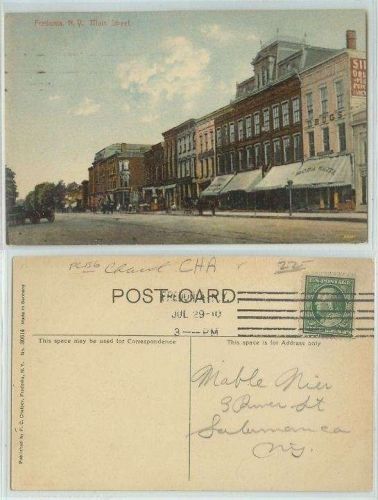 Fredonia, N. Y. Main Street
DRUGS
225
CHA
POST CARD
FREDONIA N.Y.
JUL 29-10
3 — PM
This space may be used for Correspondence
This space is for Address only
Mable Nier
3 River St
Salamanca
N.Y.
No. 30014 Made in Germany
Published by F. C. Chatsey, Fredonia, N. Y.